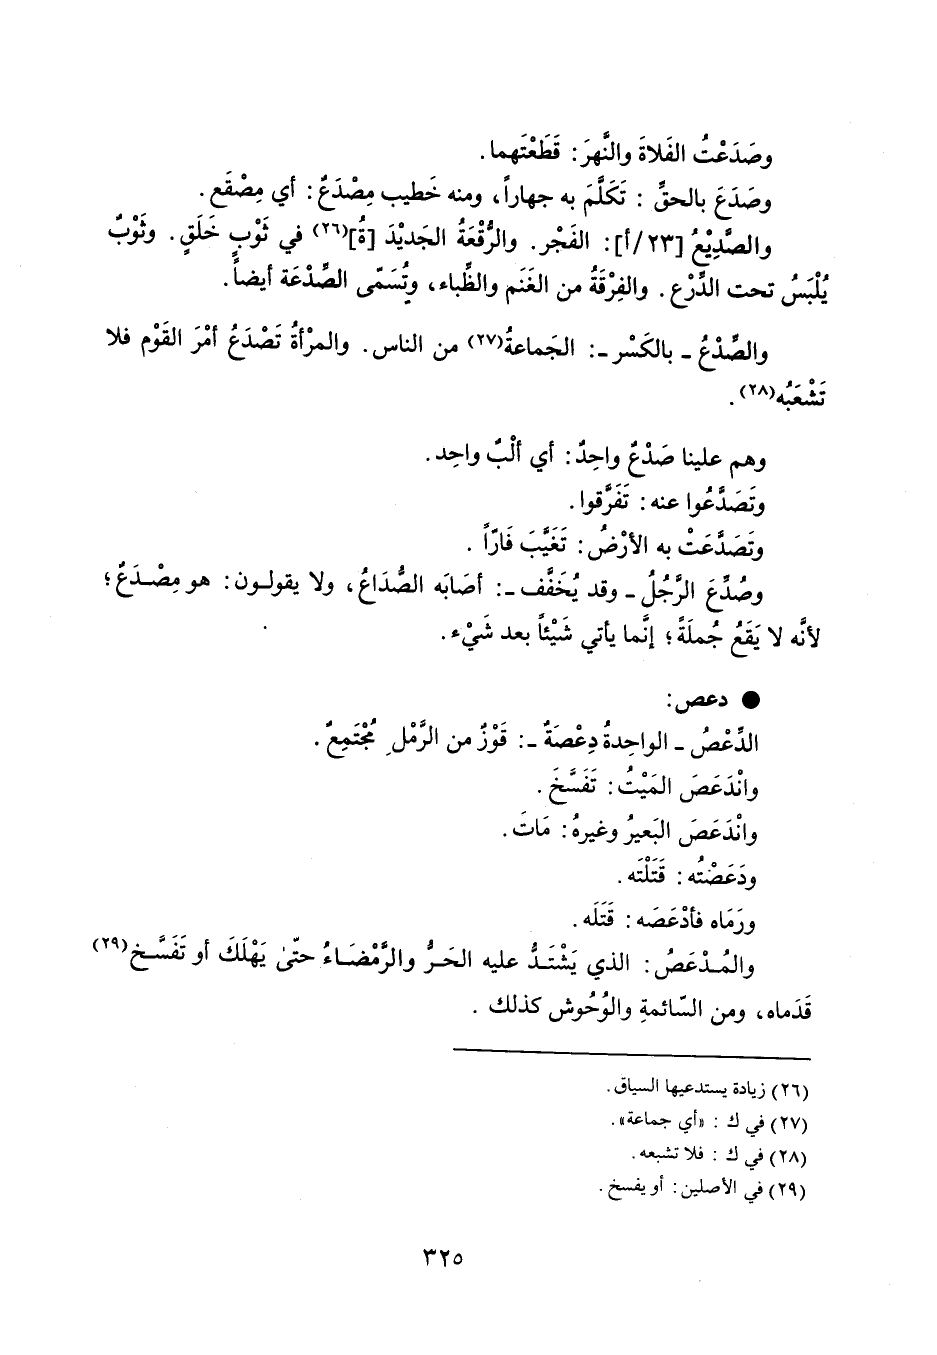 وصَدَعْتُ الفَلاةَ والنَّهرَ: قَطَعْتَهما.
وصَدَعَ بالحقِّ : تَكَلَّمَ به جهاراً، ومنه خَطيب مِصْدَعٌ: أي مِصْقَع.
والصَّدِيْعُ [٢٣/أ]: الفَجْر. والرُّقْعَةُ الجَديْدَ [ةُ](٢٦) في ثَوْبٍ خَلَقٍ. وثَوْبٌ
يُلْبَسُ تحت الدِّرْع. والفِرْقَةُ من الغَنَم والظِّباء، وتُسَمّى الصِّدْعَة أيضاً.
والصِّدْعُ ـ بالكَسْر ـ: الجَماعةُ(٢٧) من الناس. والمرْأةُ تَصْدَعُ أمْرَ القَوْم فلا
تَشْعَبُه(٢٨).
وهم علينا صَدْعٌ واحِدٌ: أي ألْبٌ واحِد.
وتَصَدَّعُوا عنه: تَفَرَّقوا.
وتَصَدَّعَتْ به الأرْضُ: تَغَيَّبَ فَارّاً.
وصُدِّعَ الرَّجُلُ ـ وقد يُخَفَّف ـ: أصَابَه الصُّدَاعُ، ولا يقولون: هو مِصْدَعٌ؛
لأنَّه لا يَقَعُ جُملَةً؛ إنَّما يأتي شَيْئاً بعد شَيْء.
● دعص:
الدِّعْصُ ـ الواحِدةُ دِعْصَةٌ ـ: قَوْزٌ من الرَّمْلِ مُجْتَمِعٌ.
وانْدَعَصَ المَيْتُ: تَفَسَّخَ.
وانْدَعَصَ البَعيرُ وغيرهُ: مَاتَ.
ودَعَصْتُه: قَتَلْتَه.
ورَمَاه فأدْعَصَه: قَتَلَه.
والمُدْعَصُ: الذي يَشْتَدُّ عليه الحَرُّ والرَّمْضَاءُ حتّىٰ يَهْلَكَ أو تَفَسَّخ(٢٩)
قَدَماه، ومن السّائمةِ والوُحُوش كذلك.
(٢٦) زيادة يستدعيها السياق.
(٢٧) في ك : «أي جماعة».
(٢٨) في ك : فلا تشبعه.
(٢٩) في الأصلين: أو يفسخ.
٣٢٥